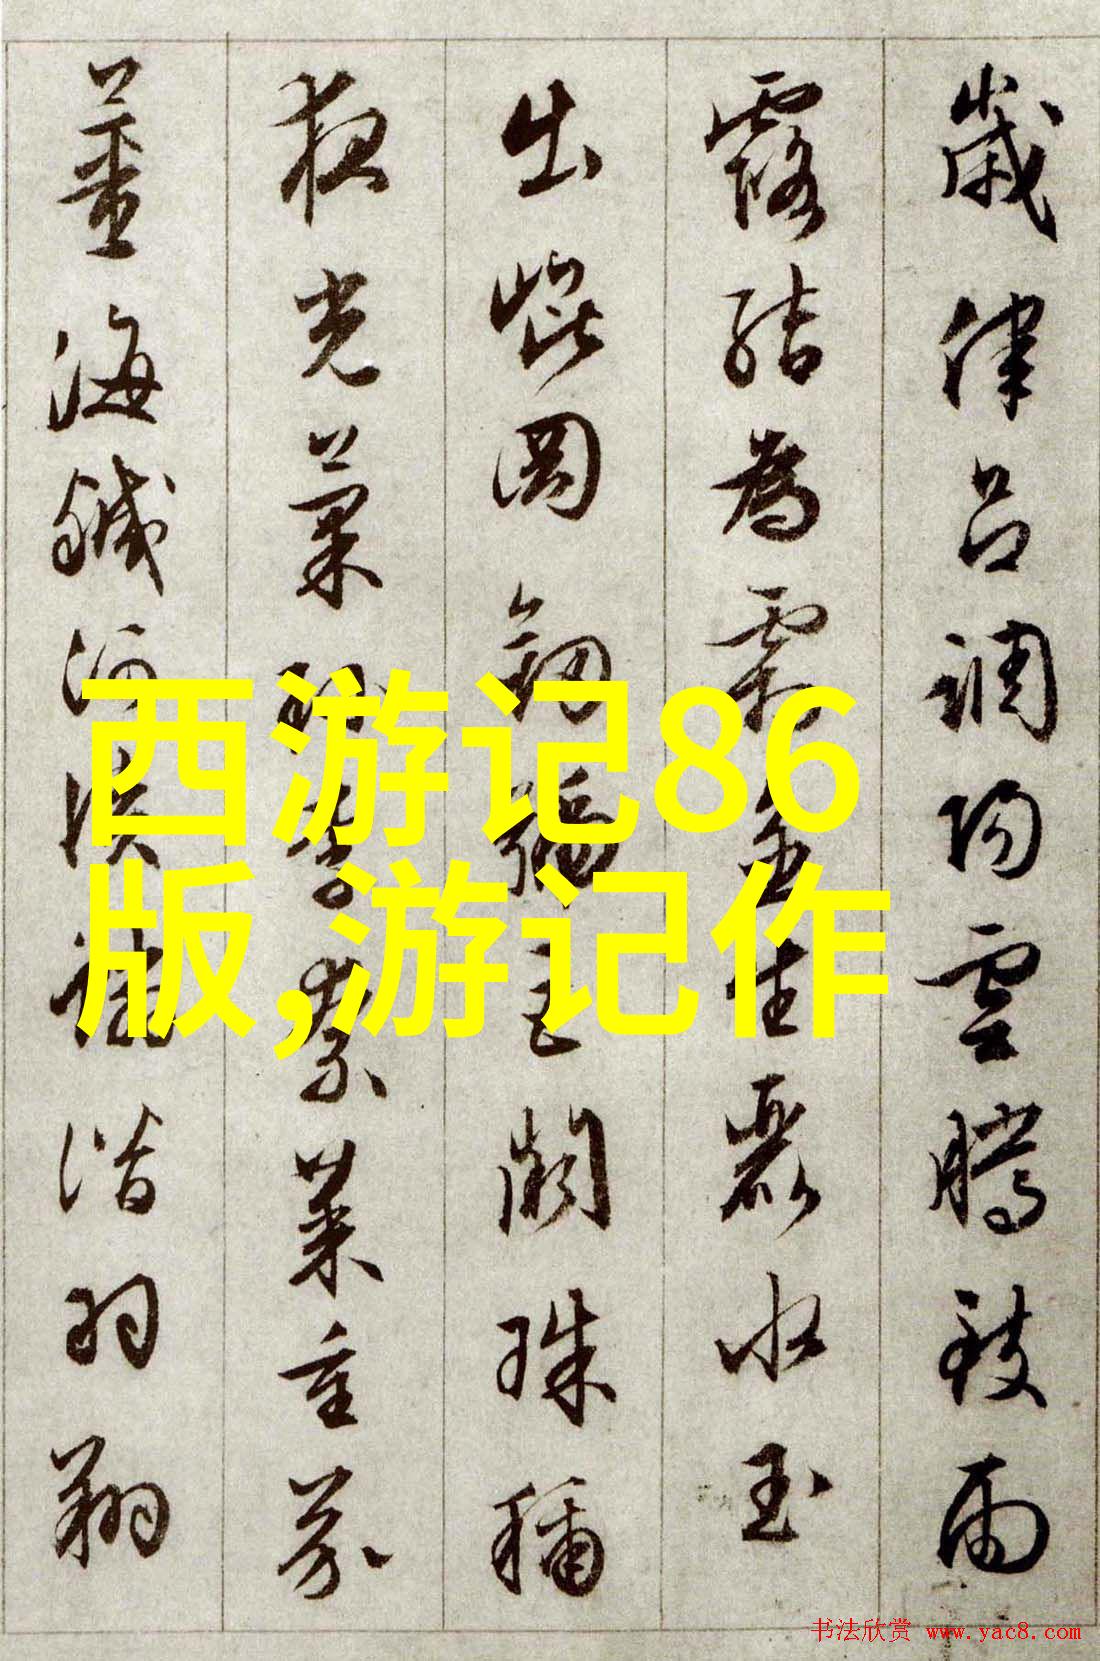 歲律呂調陽雲騰致雨
露結為霜金生麗水玉
出崐岡劍號巨闕珠稱
夜光菓珍李柰菜重芥
薑海鹹河淡鱗潛羽翔
西游记86
版,游记作
书法欣赏 www.yac8.com